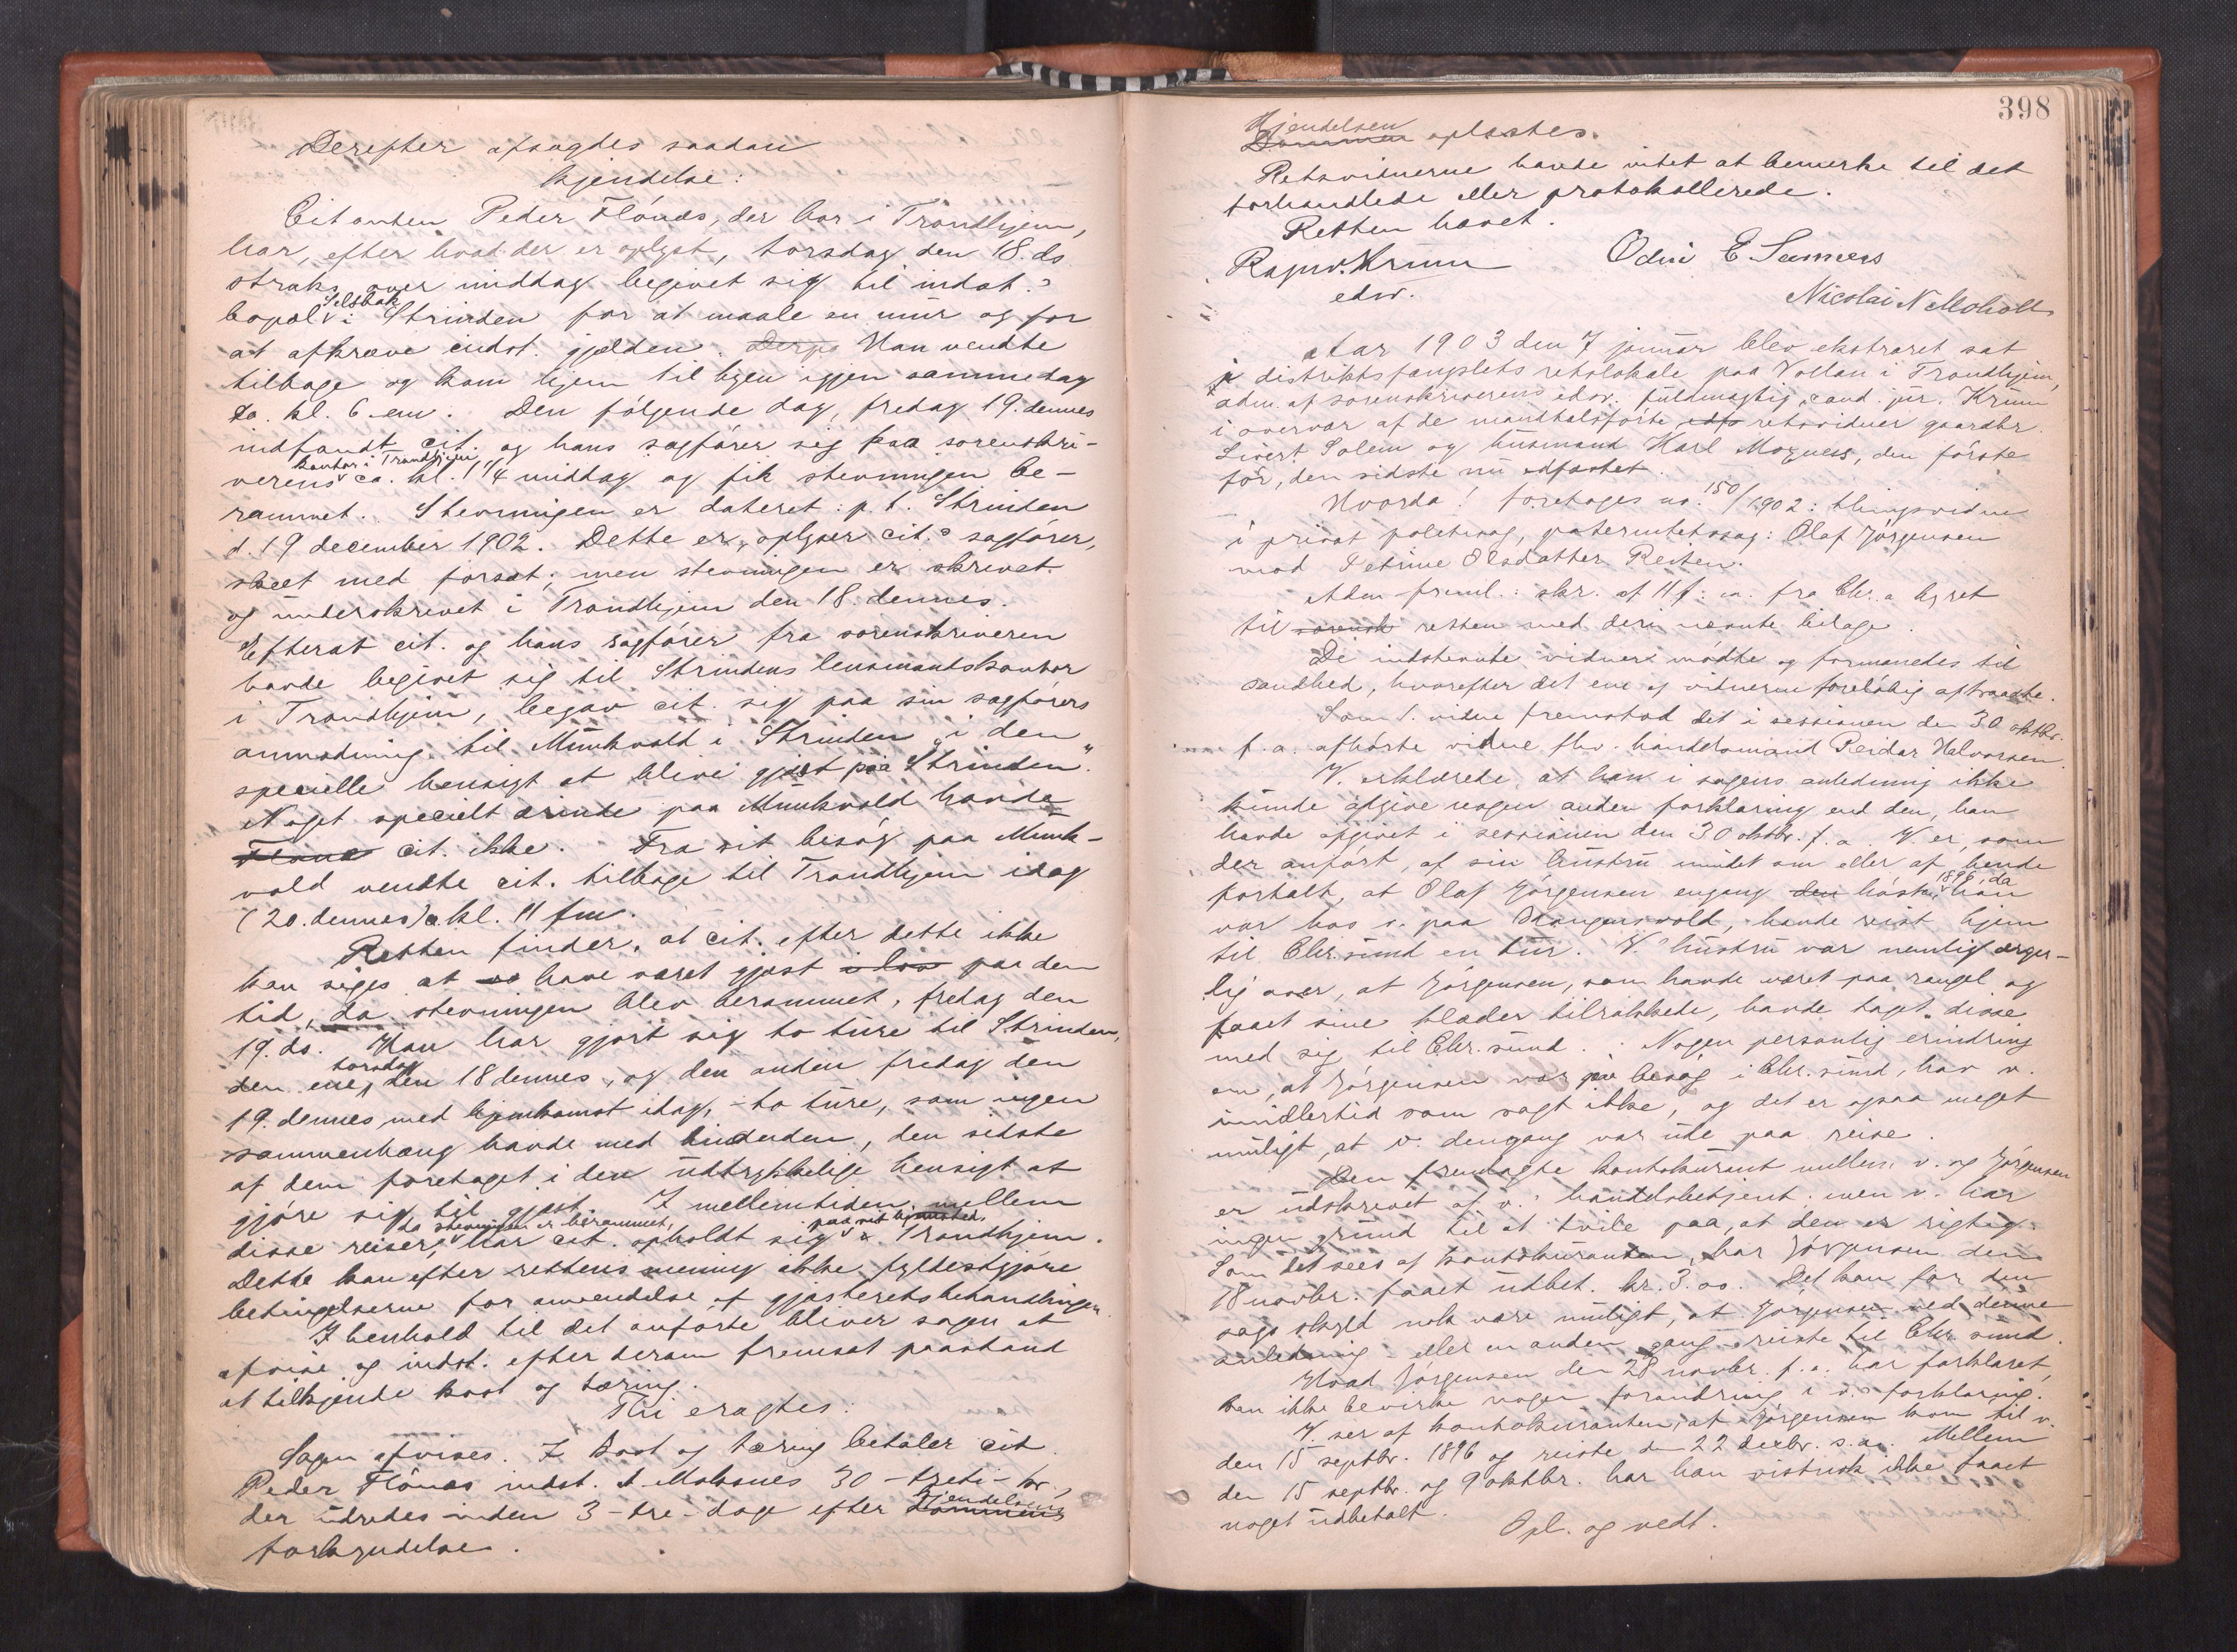 Derefter afsagdes saadan
kjendelse:
Citanten Peder Flönæs, der bor i Trondhjem,
har, efter hvad der er oplyst, torsdag den 18. ds
straks over middag begivet sig til indst.s
bopæl Selsbak i Strinden for at maale en mur og for
at afkræve indst. gjælden. Han vendte
tilbage og kom hjem til byen igjen samme dag
ca. kl. 6 em. Den følgende dag, fredag 19. dennes
indfandt cit. og hans sagfører sig paa sorenskri-
verens kontor i Trondhjem ca. kl. 1 1/4 middag og fik stevningen be-
rammet. Stevningen er dateret: p. t. Strinden
d. 19 december 1902. Dette er, oplyser cit.s sagfører,
skeet med forsæt; men stevningen er skrevet
og underskrevet i Trondhjem den 18. dennes.
Efterat cit. og hans sagfører fra sorenskriveren
havde begivet sig til Strindens lensmandskontor
i Trondhjem, begav cit. sig paa sin sagførers
anmodning til Munkvold i Strinden "i den
specielle hensigt at blive gjæst paa Strinden".
Noget specielt ærinde paa Munkvold havde
Flönæs cit. ikke. Fra sit besøg paa Munk-
vold vendte cit. tilbage til Trondhjem idag
(20. dennes) kl. 11 fm.
Retten finder, at cit. efter dette ikke
kan siges at have været gjæst paa den
tid, da stevningen blev berammet, fredag den
19. ds. Han har gjort sig to ture til Strinden,
den ene, torsdag den 18 dennes, og den anden fredag den
19. dennes med hjemkomst idag, - to ture, som ingen
sammenhæng havde med hinanden, den sidste
af dem foretaget i den udtrykkelige hensigt at
gjøre sig til gjæst. I mellemtiden mellem
disse reiser, da stevningen er berammet, har cit. opholdt sig paa sit hjemsted, Trondhjem.
Dette kan efter rettens mening ikke fyldestgjøre
betingelserne for anvendelse af gjæsteretsbehandlingen.
I henhold til det anførte bliver sagen at
afvise og indst. efter derom fremsat paastand
at tilkjende kost og tæring.
Thi eragtes:
Sagen afvises. I kost og tæring betaler cit.
Peder Flönæs indst. A. Moksnes 30 - treti - kr.,
der udredes inden 3 - tre - dage efter dommens kjendelsens
forkyndelse.
398
Dommen Kjendelsen oplæstes.
Retsvidnerne havde intet at bemerke til det
forhandlede eller protokollerede.
Retten hævet.
Ragnv. Krum Odin E Sumess
edsv.
Nicolai N Moholt
Aar 1903 den 7 januar blev ekstraret sat
i distriktsfængslets retslokale paa Vollan i Trondhjem,
adm. af sorenskriverens edsv. fuldmægtig, cand. jur. Krum
i overvær af de mandtalsførte retsvidner gaardbr.
Sivert Solem og husmand Karl Moxness, den første
før, den sidste nu edfæstet.
Hvorda! foretoges no. 150/1902: thingsvidne
i privat politisag, paternitetssag: Olaf Jørgensen
mod Petrine Olsdatter Resten.
Adm. freml.: skr. af 11 f. m. fra Chr.a byret
til sorensk retten med deri nævnte bilage.
De indstevnte vidner mødte og formanedes til
sandhed, hvorefter det ene af vidnerne foreløbig aftraadte.
Som 1. vidne fremstod det i sessionen den 30 oktbr.
f. a. afhørte vidne fhv. handelsmand Reidar Halvorsen.
V. erklærede, at han i sagens anledning ikke
kunde afgive nogen anden forklaring end den, han
havde afgivet i sessionen den 30 oktbr. f. a. V. er, som
der anført, af sin hustru mindet om eller af hende
fortalt, at Olaf Jørgensen engang den høsten 1896, da han
var hos v. paa Stangensvold, havde reist hjem
til Chr.sund en tur. V.s hustru var nemlig ærger-
lig over, at Jørgensen, som havde været paa rangel og
faaet sine klæder tilrakkede, havde taget disse
med sig til Chr.sund. Nogen personlig erindring
om, at Jørgensen var paa besøg i Chr.sund, har v.
imidlertid som sagt ikke, og det er ogsaa meget
muligt, at v. dengang var ude paa reise.
Den fremlagte kontokurant mellem v. og Jørgensen
er udskrevet af v.s handelsbetjent, men v. har
ingen grund til at tvile paa, at den er rigtig.
Som det sees af kontokuranten, har Jørgensen den
18 novbr. faaet udbet. kr. 3.00. Det kan for den
sags skyld nok være muligt, at Jørgensen ved denne
anledning - eller en anden gang - reiste til Chr.sund.
Hvad Jørgensen den 28 novbr. f. a. har forklaret,
kan ikke bevirke nogen forandring i v.s forklaring.
V. ser af kontokuranten, at Jørgensen kom til v.
den 15 septbr. 1896 og reiste den 22 decbr. s. a. Mellem
den 15 septbr. og 9 oktbr. har han vistnok ikke faaet
noget udbetalt.
Opl. og vedt.